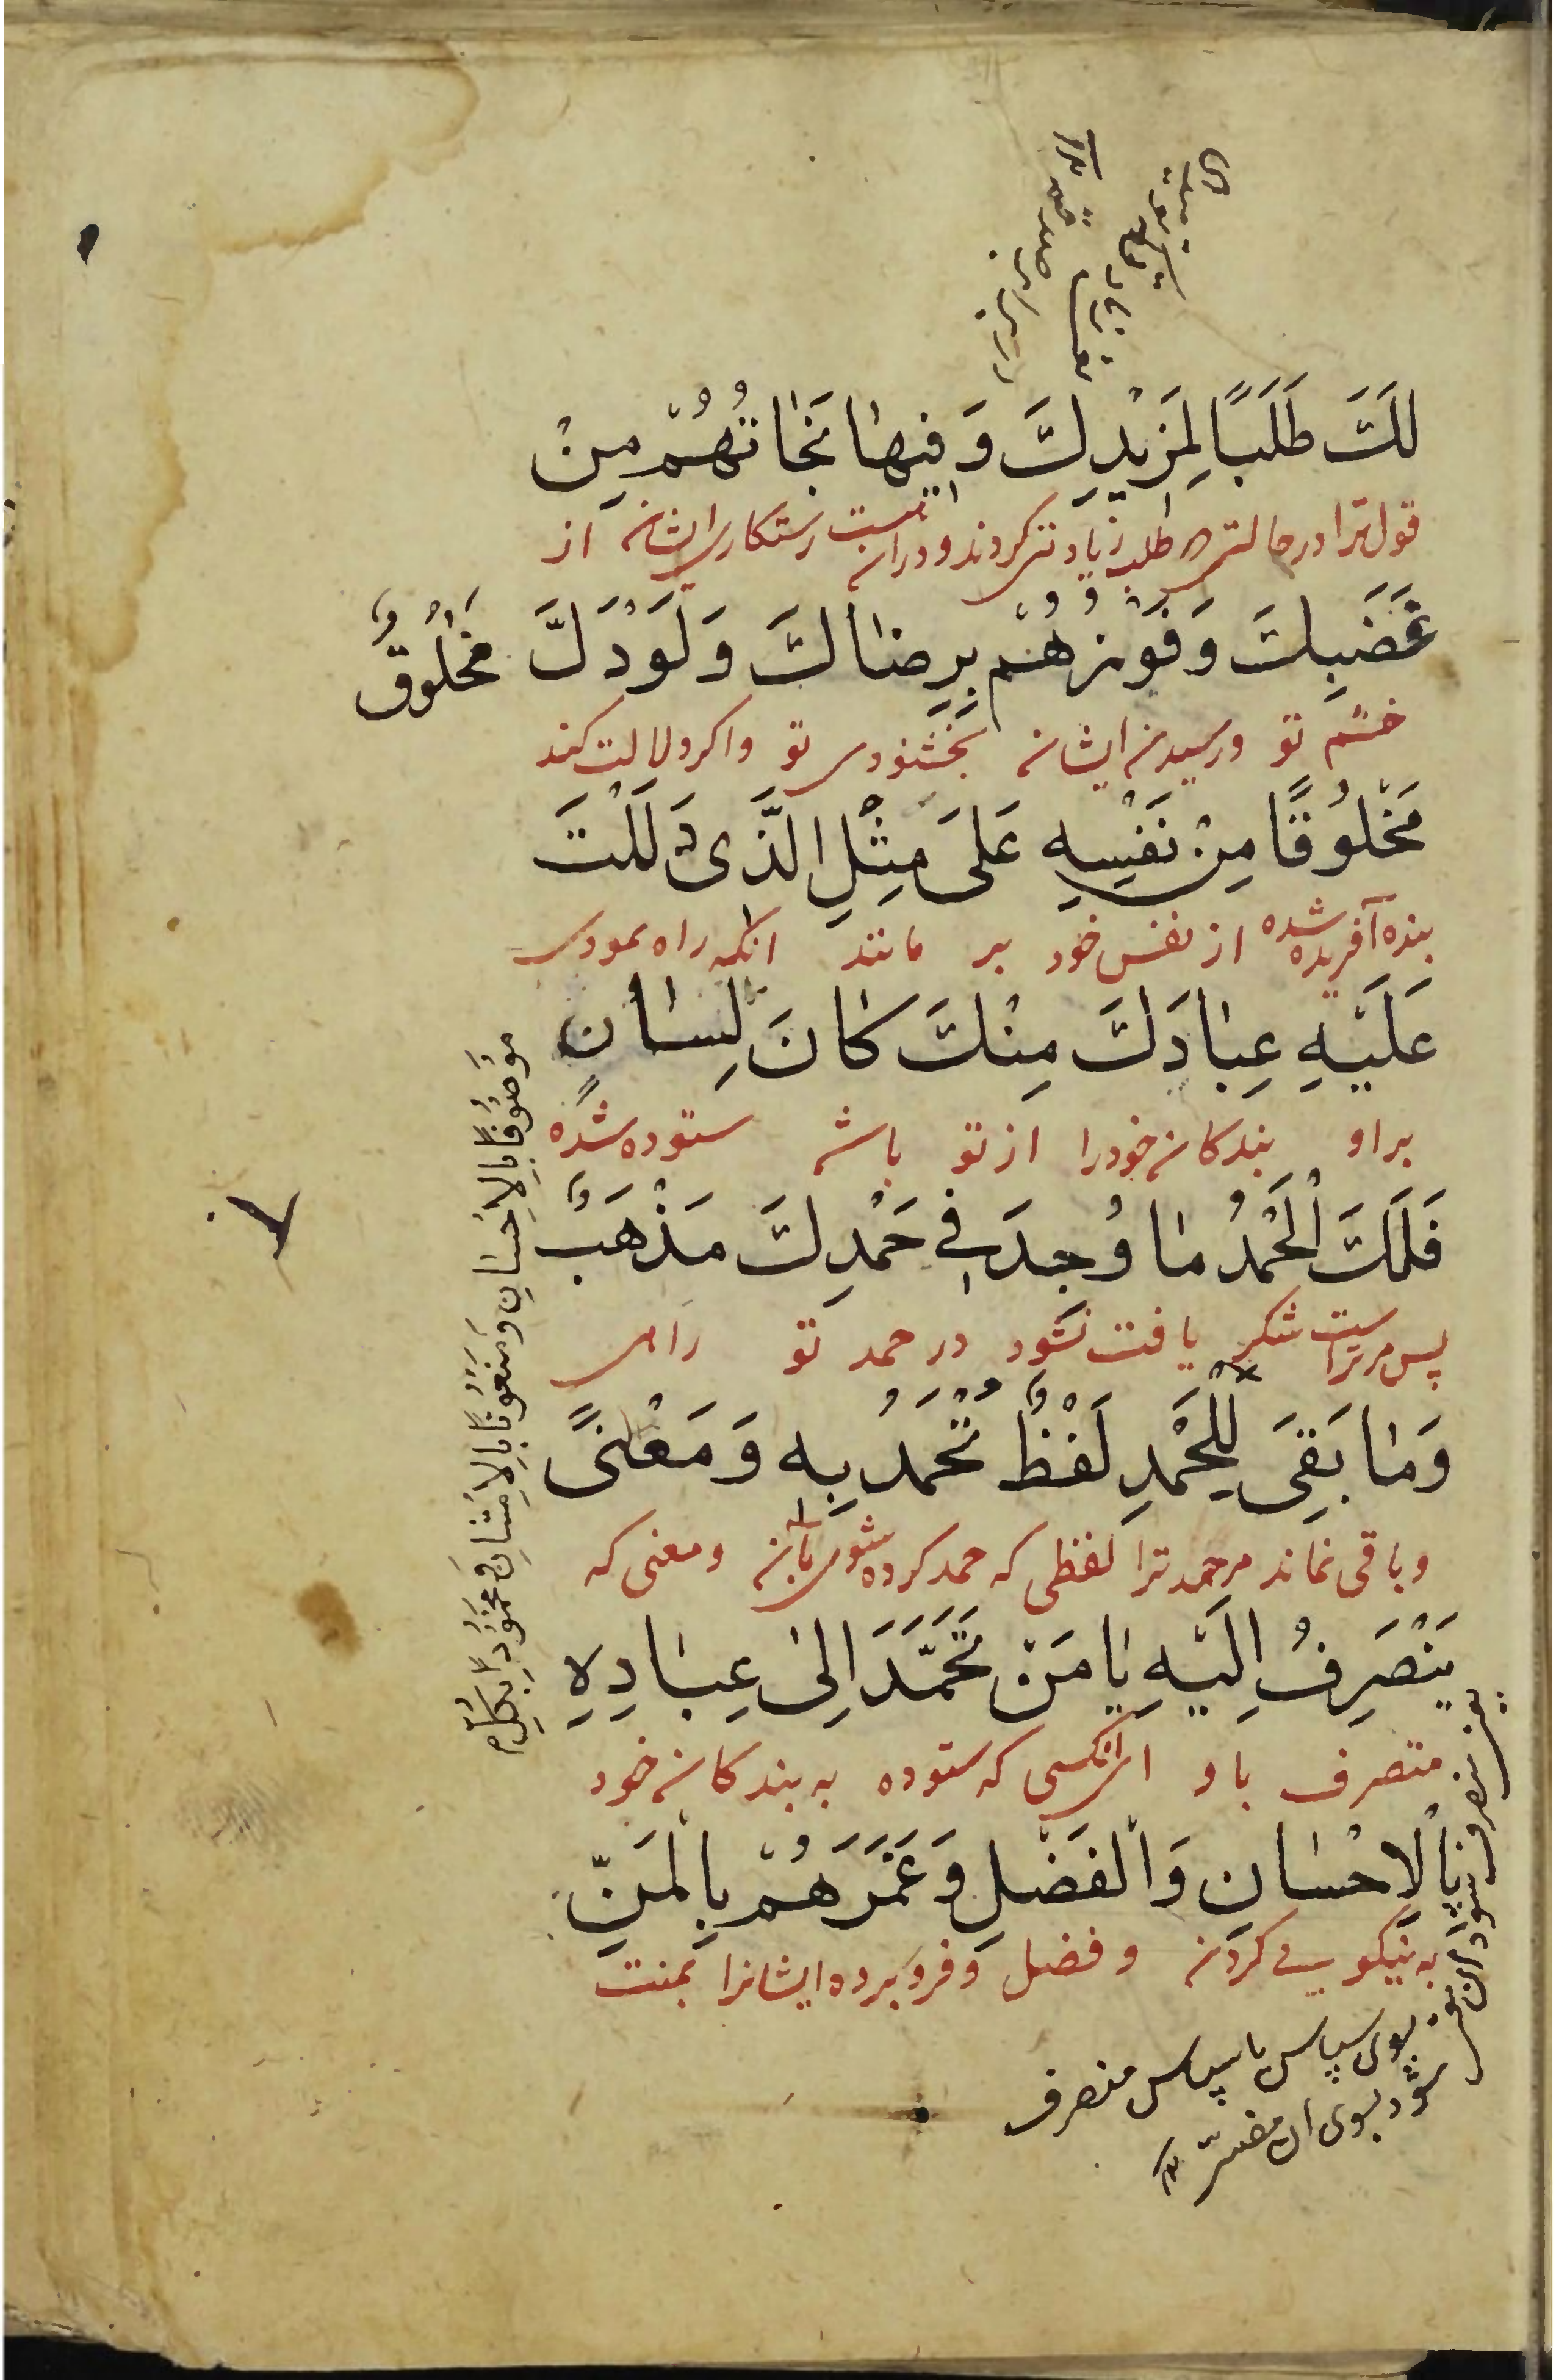 لَكَ طَلَبًا لِمَزِيْدِكَ وَ فِيهَا نَجَاتُهُمْ مِنْ
قول ترا در حالتی که طلب زیادتی کردند و درانست رستکاری ایشان از
غَضَبِكَ وَ فَوْزُهُمْ بِرِضَاكَ وَ لَوْ دَلَّ مَخْلُوقٌ
خشم تو و رسیدن ایشان بخشنودی تو و اکر دلالت کند
مَخْلُوقًا مِنْ نَفْسِهِ عَلَى مِثْلِ الَّذِي دَلَلْتَ
بنده آفریده شده از نفس خود بر مانند انکه راه نمودی
عَلَيْهِ عِبَادَكَ مِنْكَ كَانَ لِسَانٍ
بر او بندکان خود را از تو باشد ستوده شده
مَوْصُوفًا بِالْاِحْسَانِ وَ مَنْعُوتًا بِالْاِمْتِنَانِ وَ مَحْمُودًا بِكُلِّ
فَلَكَ الْحَمْدُ مَا وُجِدَ فِي حَمْدِكَ مَذْهَبٌ
پس مر تراست شکر یافت نشود در حمد تو راهی
وَ مَا بَقِيَ لِلْحَمْدِ لَفْظٌ تُحْمَدُ بِهِ وَ مَعْنًى
و باقی نماند مر حمد ترا لفظی که حمد کرده شوی بان و معنی که
يَنْصَرِفُ اِلَيْهِ يَا مَنْ تَحَمَّدَ اِلَى عِبَادِهِ
متصرف باو ای انکسی که ستوده به بندکان خود
بِالْاِحْسَانِ وَ الْفَضْلِ وَ غَمَرَهُمْ بِالْمَنِّ
به نیکویی کردن و فضل و فرو برده ایشانرا بمنت
بسوی سپاس یا سپاس منصرف
شود بسوی ان مفسّر